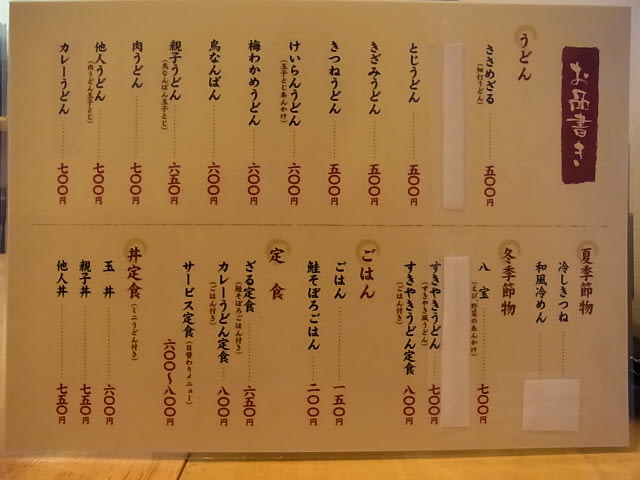 お品書き
うどん
ささめざる
(細打うどん)
五〇〇円
とじうどん 五〇〇円
きざみうどん 五〇〇円
きつねうどん 五〇〇円
けいらんうどん
(玉子とじあんかけ)
六〇〇円
梅わかめうどん 六〇〇円
鳥なんばん 六〇〇円
親子うどん
(鳥なんばん玉子とじ)
六五〇円
肉うどん 七〇〇円
他人うどん
(肉うどん玉子とじ)
七〇〇円
カレーうどん 七〇〇円
夏季節物
冷しきつね
和風冷めん
冬季節物
八宝
(えび、野菜のあんかけ)
七〇〇円
すきやきうどん
(すきやき風うどん)
七〇〇円
すきやきうどん定食
(ごはん付き)
八〇〇円
ごはん
ごはん 一五〇円
鮭そぼろごはん 二〇〇円
定食
ざる定食
(鮭そぼろごはん付き)
六五〇円
カレーうどん定食
(ごはん付き)
八〇〇円
サービス定食(日替わりメニュー)
六〇〇〜八〇〇円
丼定食(ミニうどん付き)
玉丼 六〇〇円
親子丼 七五〇円
他人丼 七五〇円